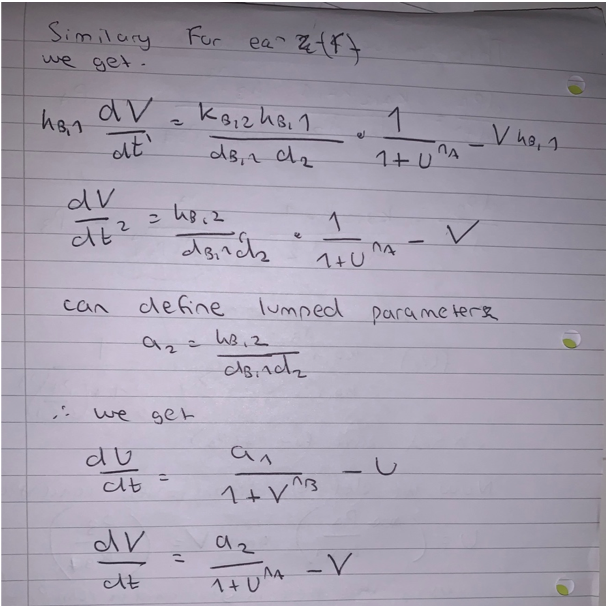 Similary For ea
we get.
h_{B,1} \frac{dV}{dt'} = \frac{K_{B,2} h_{B,1}}{d_{B,1} d_2} \cdot \frac{1}{1+U^{n_A}} - V h_{B,1}
\frac{dV}{dt} = \frac{h_{B,2}}{d_{B,1} d_2} \cdot \frac{1}{1+U^{n_A}} - V
can define lumped parameters
a_2 = \frac{h_{B,2}}{d_{B,1} d_2}
∴ we get
\frac{dU}{dt} = \frac{a_1}{1+V^{n_B}} - U
\frac{dV}{dt} = \frac{a_2}{1+U^{n_A}} - V